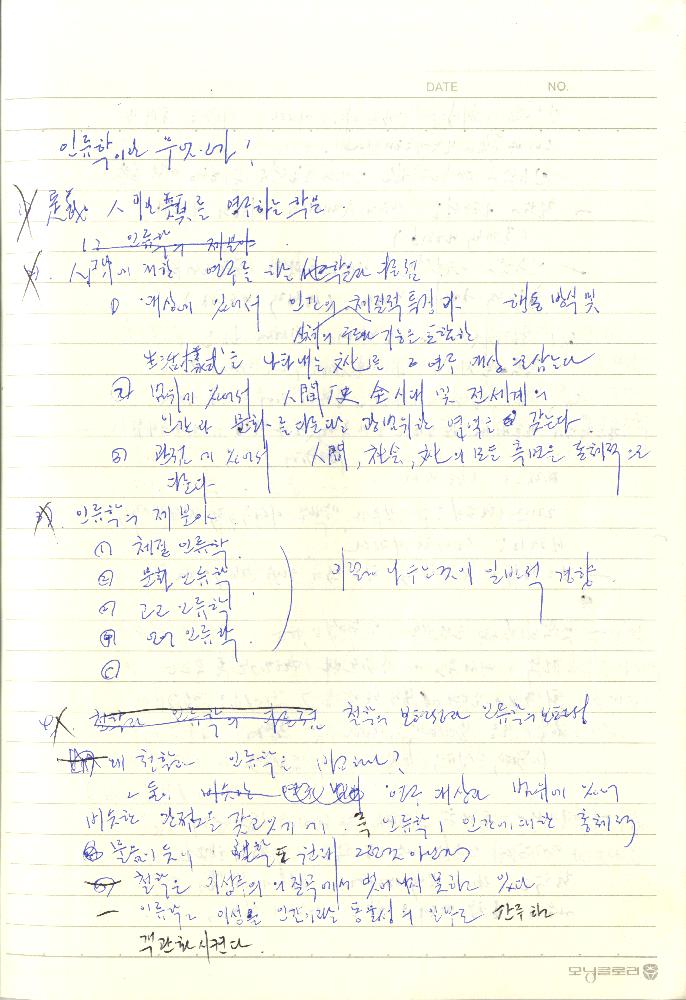 DATE NO.
인류학이란 무엇인가!
定義 人間을 연구하는 학문.
1.2 인류학의 제분야
연구를 하는 他학문과 차이점
① 대상에 있어서 인간의 체질적 특징과 행동 방식 및
신체의 구조와 기능을 포함한
生活樣式을 나타내는 文化를 그 연구 대상으로 삼는다
② 범위에 있어서 人間 歷史 全시대 및 전세계의
인간과 문화를 다룬다는 광범위한 영역을 갖는다.
③ 관점에 있어서 人間, 文化의 모든 측면을 총체적으로
다룬다
3) 인류학의 제 분야.
① 체질 인류학.
② 문화 인류학
③ 고고 인류학
④ 언어 인류학.
이렇게 나누는 것이 일반적 경향.
4) 철학과 인류학의 차이점 철학의 보편성과 인류학의 보편성
왜 철학과 인류학을 비교하나?
- 둘이 비슷한 연구 대상과 범위에 있어
비슷한 관점을 갖고 있기에. 즉 인류학이 인간에 대한 총체적
물음이듯이 철학도 현재 그런 것 아닌가
- 철학은 이성주의의 질곡에서 벗어나지 못하고 있다
- 인류학은 이성을 인간이라는 동물성의 일부로 간주하고
객관화시킨다.
모닝글로리